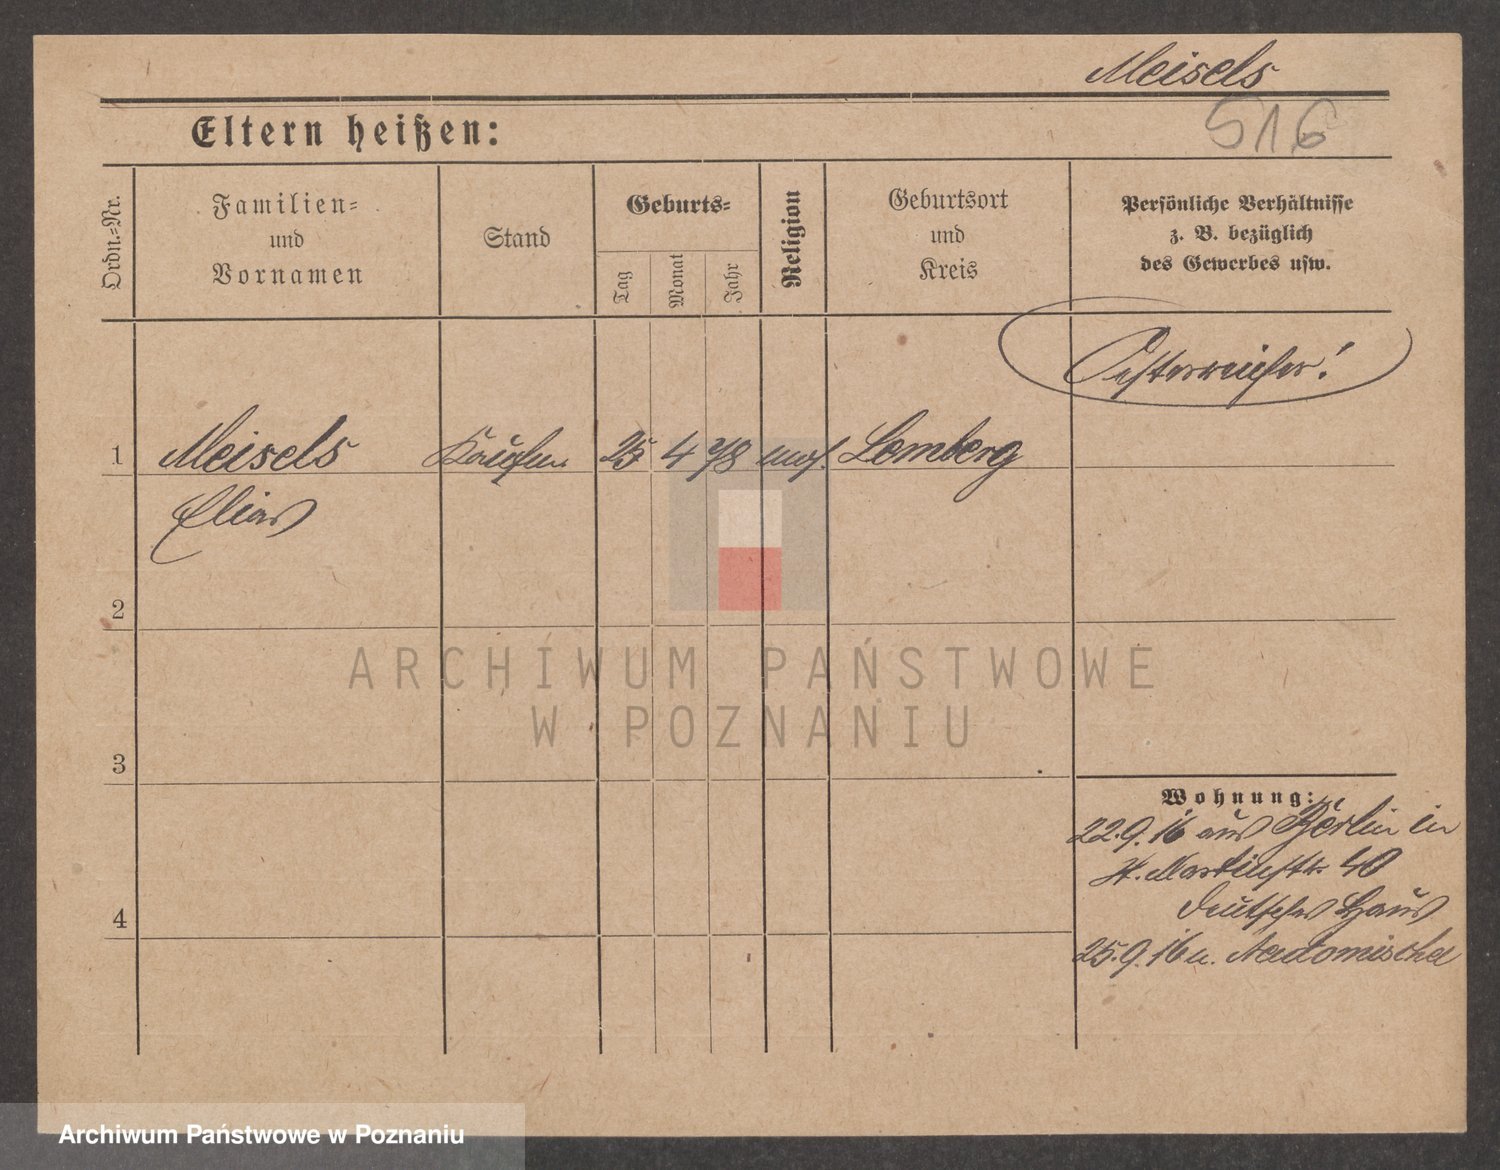 Meisels
516
Eltern heißen:
Ordn.=Nr.
Familien=
und
Vornamen
Stand
Geburts=
Tag
Monat
Jahr
Religion
Geburtsort
und
Kreis
Persönliche Verhältnisse
z. B. bezüglich
des Gewerbes usw.
Oesterreicher!
1 Meisels Kaufm. 25 4 78 mos. Lemberg
Elias
2
3
4
Wohnung:
22.9.16 aus Berlin in
St. Martinstr. 40
Deutsches Haus
25.9.16 n. Neutomischel
ARCHIWUM PAŃSTWOWE
W POZNANIU
Archiwum Państwowe w Poznaniu